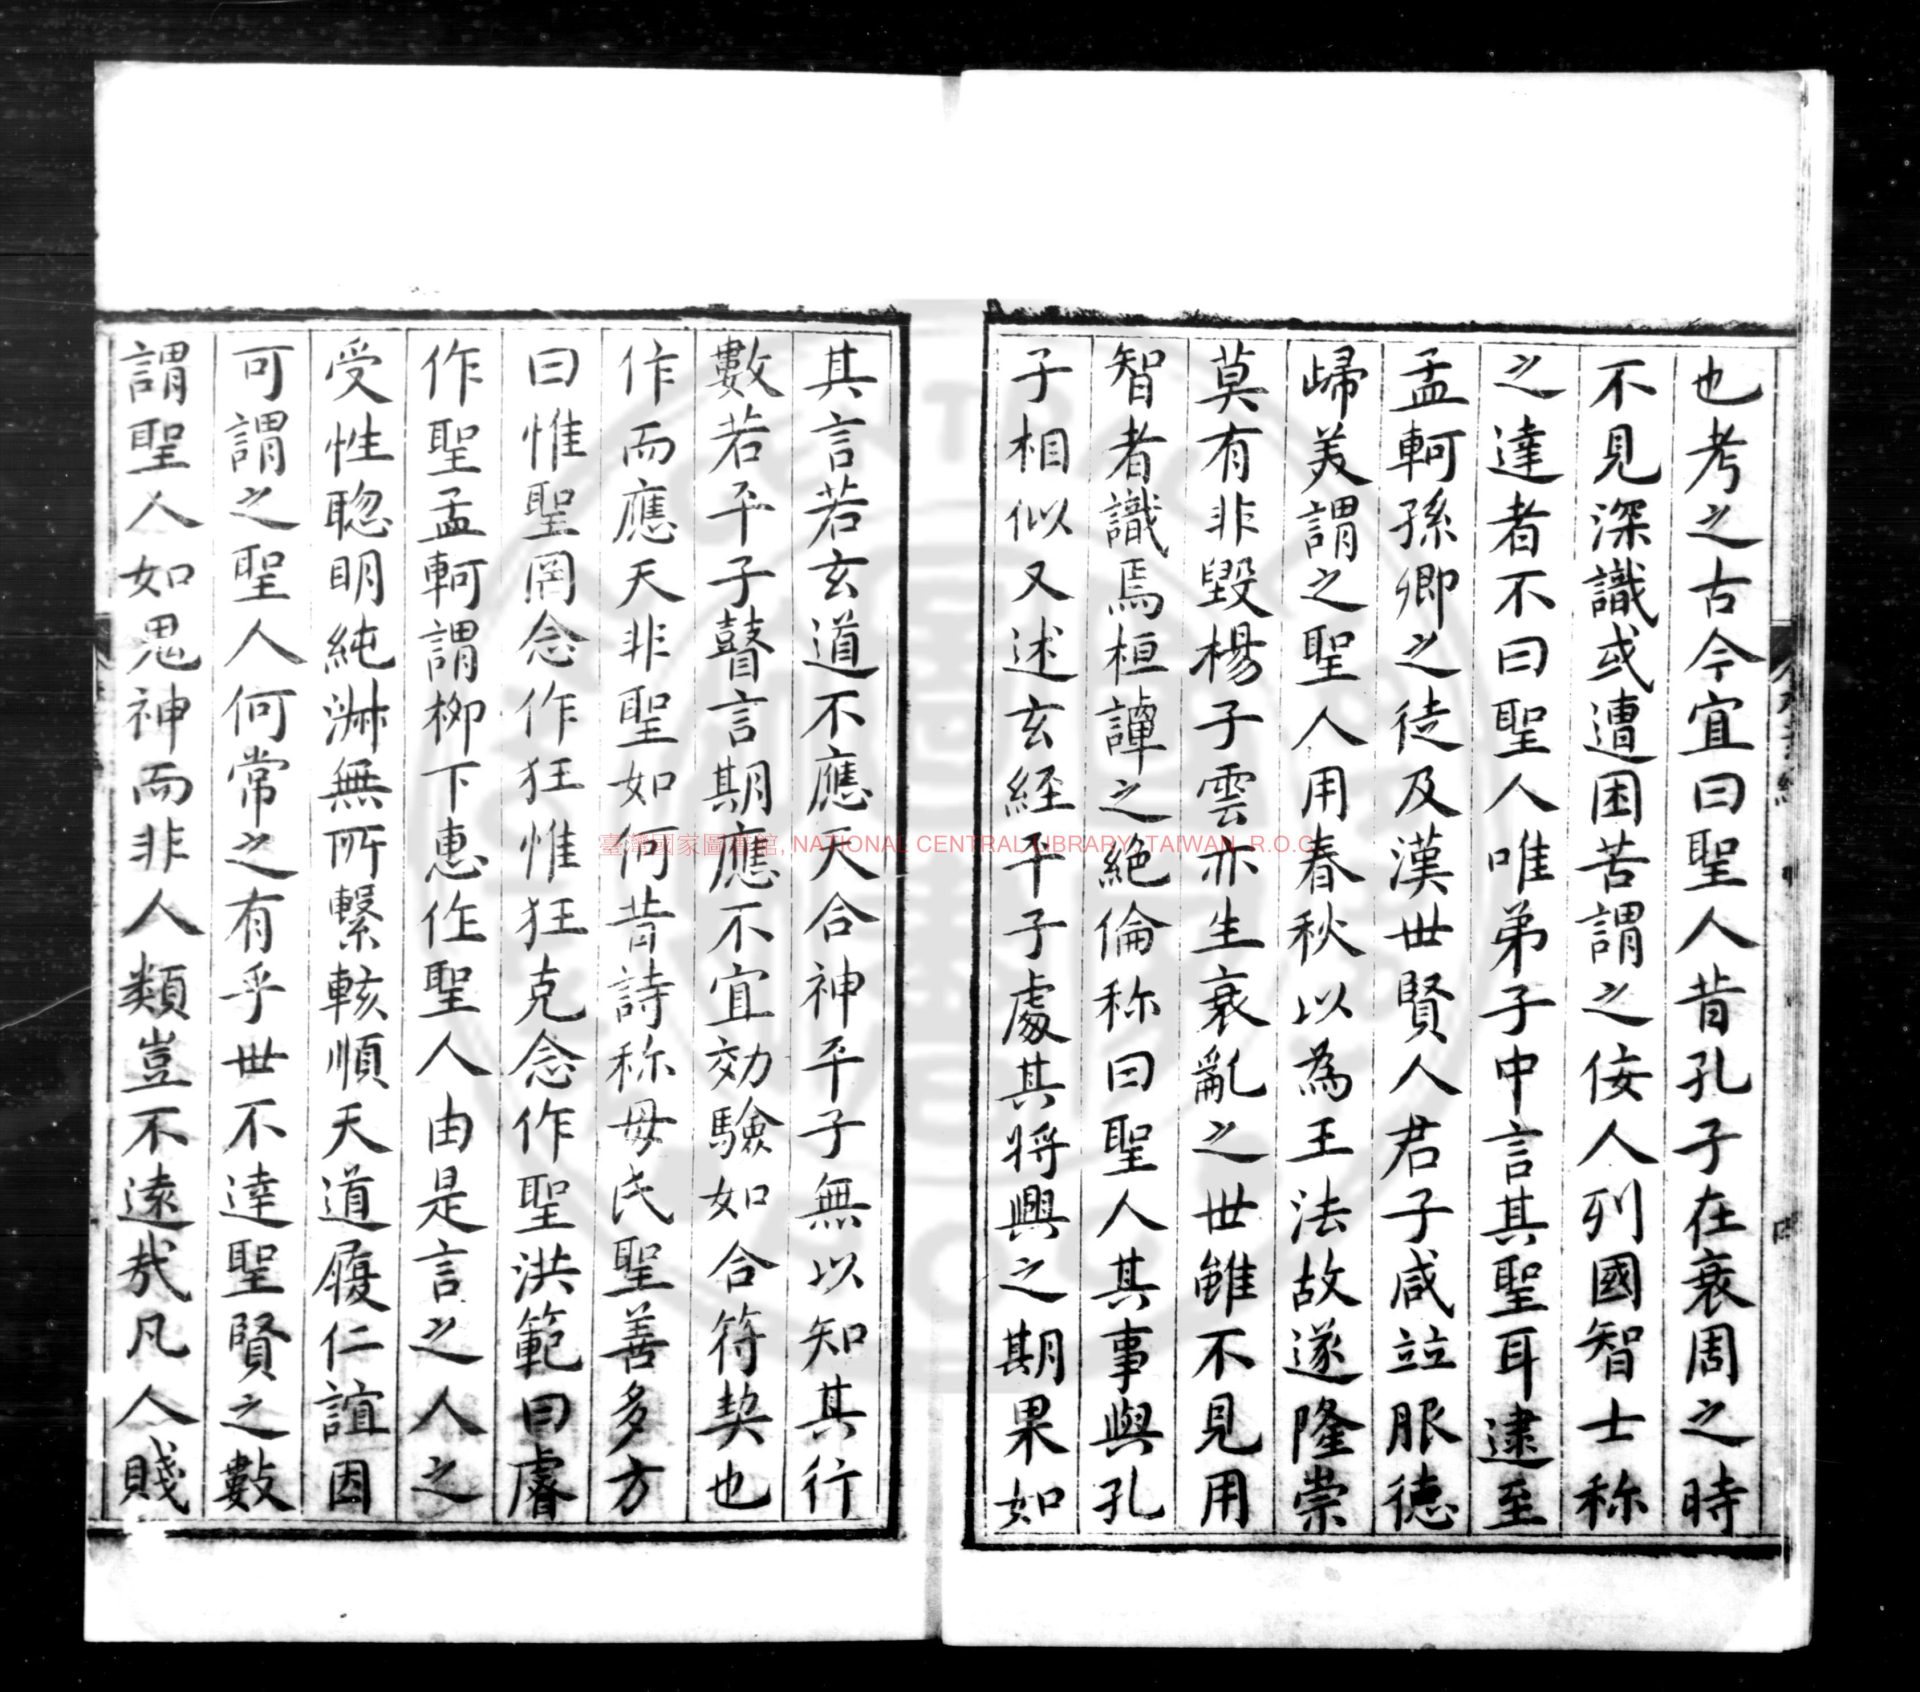 也考之古今宜曰聖人昔孔子在衰周之時
不見深識或遭困苦謂之佞人列國智士称
之達者不曰聖人唯弟子中言其聖耳逮至
孟軻孫卿之徒及漢世賢人君子咸竝服德
歸美謂之聖人用春秋以為王法故遂隆崇
莫有非毀楊子雲亦生衰亂之世雖不見用
智者識焉桓譚之絶倫称曰聖人其事與孔
子相似又述玄經平子處其將興之期果如
其言若玄道不應天合神平子無以知其行
數若平子瞽言期應不宜効驗如合符契也
作而應天非聖如何昔詩称母氏聖善多方
曰惟聖罔念作狂惟狂克念作聖洪範曰睿
作聖孟軻謂柳下惠作聖人由是言之人之
受性聡明純淋無所繫輆順天道履仁誼因
可謂之聖人何常之有乎世不達聖賢之數
謂聖人如鬼神而非人類豈不遠哉凡人賤
臺灣國家圖書館, NATIONAL CENTRAL LIBRARY, TAIWAN, R.O.C